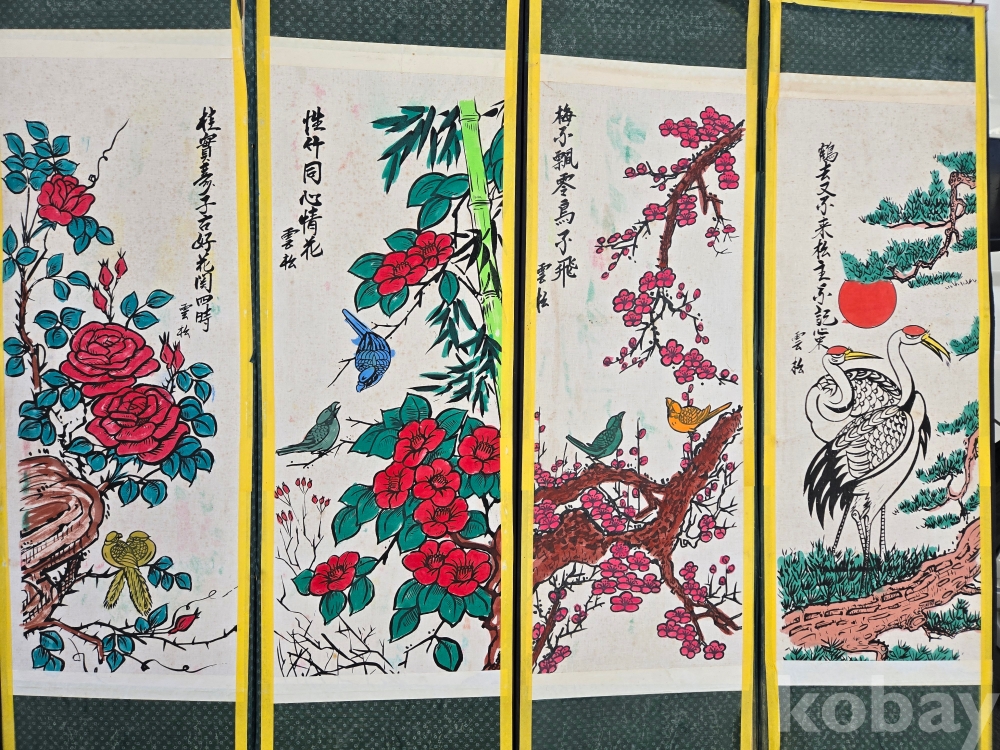 桂實壽子古好花開四時
雲松
性竹同心情花
雲松
梅不飄零鳥不飛
雲松
鶴去又不来松
雲松
kobay